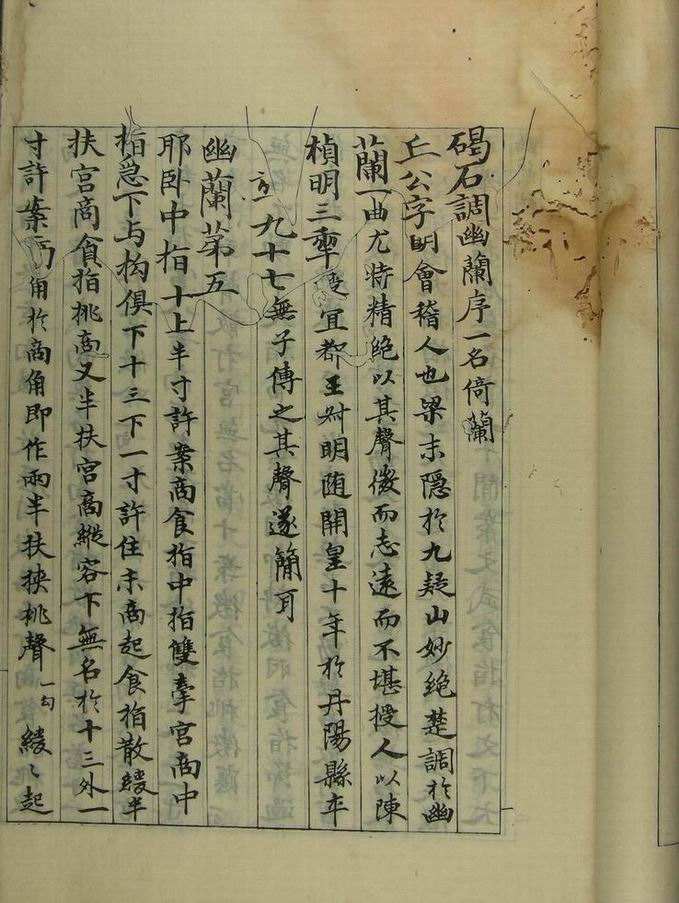 碣石調幽蘭序一名倚蘭
丘公字明會稽人也梁末隠於九疑山妙絶楚調於幽
蘭一曲尤特精絶以其聲微而志遠而不堪授人以陳
楨明三年授宜都王叔明随開皇十年於丹陽縣卒
九十七無子傳之其聲遂簡耳
幽蘭第五
耶卧中指十上半寸許案商食指中指雙牽宮商中
指急下与拘俱下十三下一寸許住末商起食指散緩半
扶宮商食指挑商又半扶宮商縱容下無名於十三外一
寸許案商角於商角即作兩半扶挾挑聲一句緩〻起